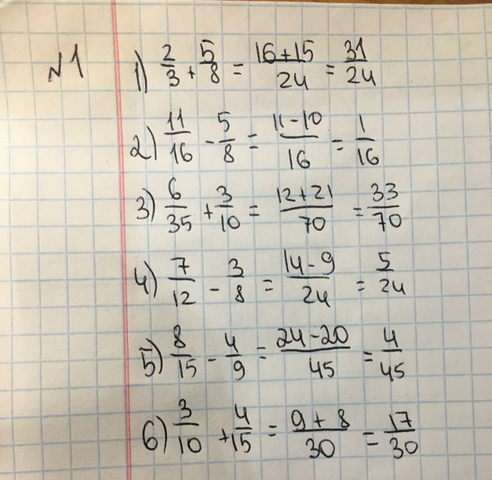 №1
1) 2/3 + 5/8 = (16+15)/24 = 31/24
2) 11/16 - 5/8 = (11-10)/16 = 1/16
3) 6/35 + 3/10 = (12+21)/70 = 33/70
4) 7/12 - 3/8 = (14-9)/24 = 5/24
5) 8/15 - 4/9 = (24-20)/45 = 4/45
6) 3/10 + 4/15 = (9+8)/30 = 17/30